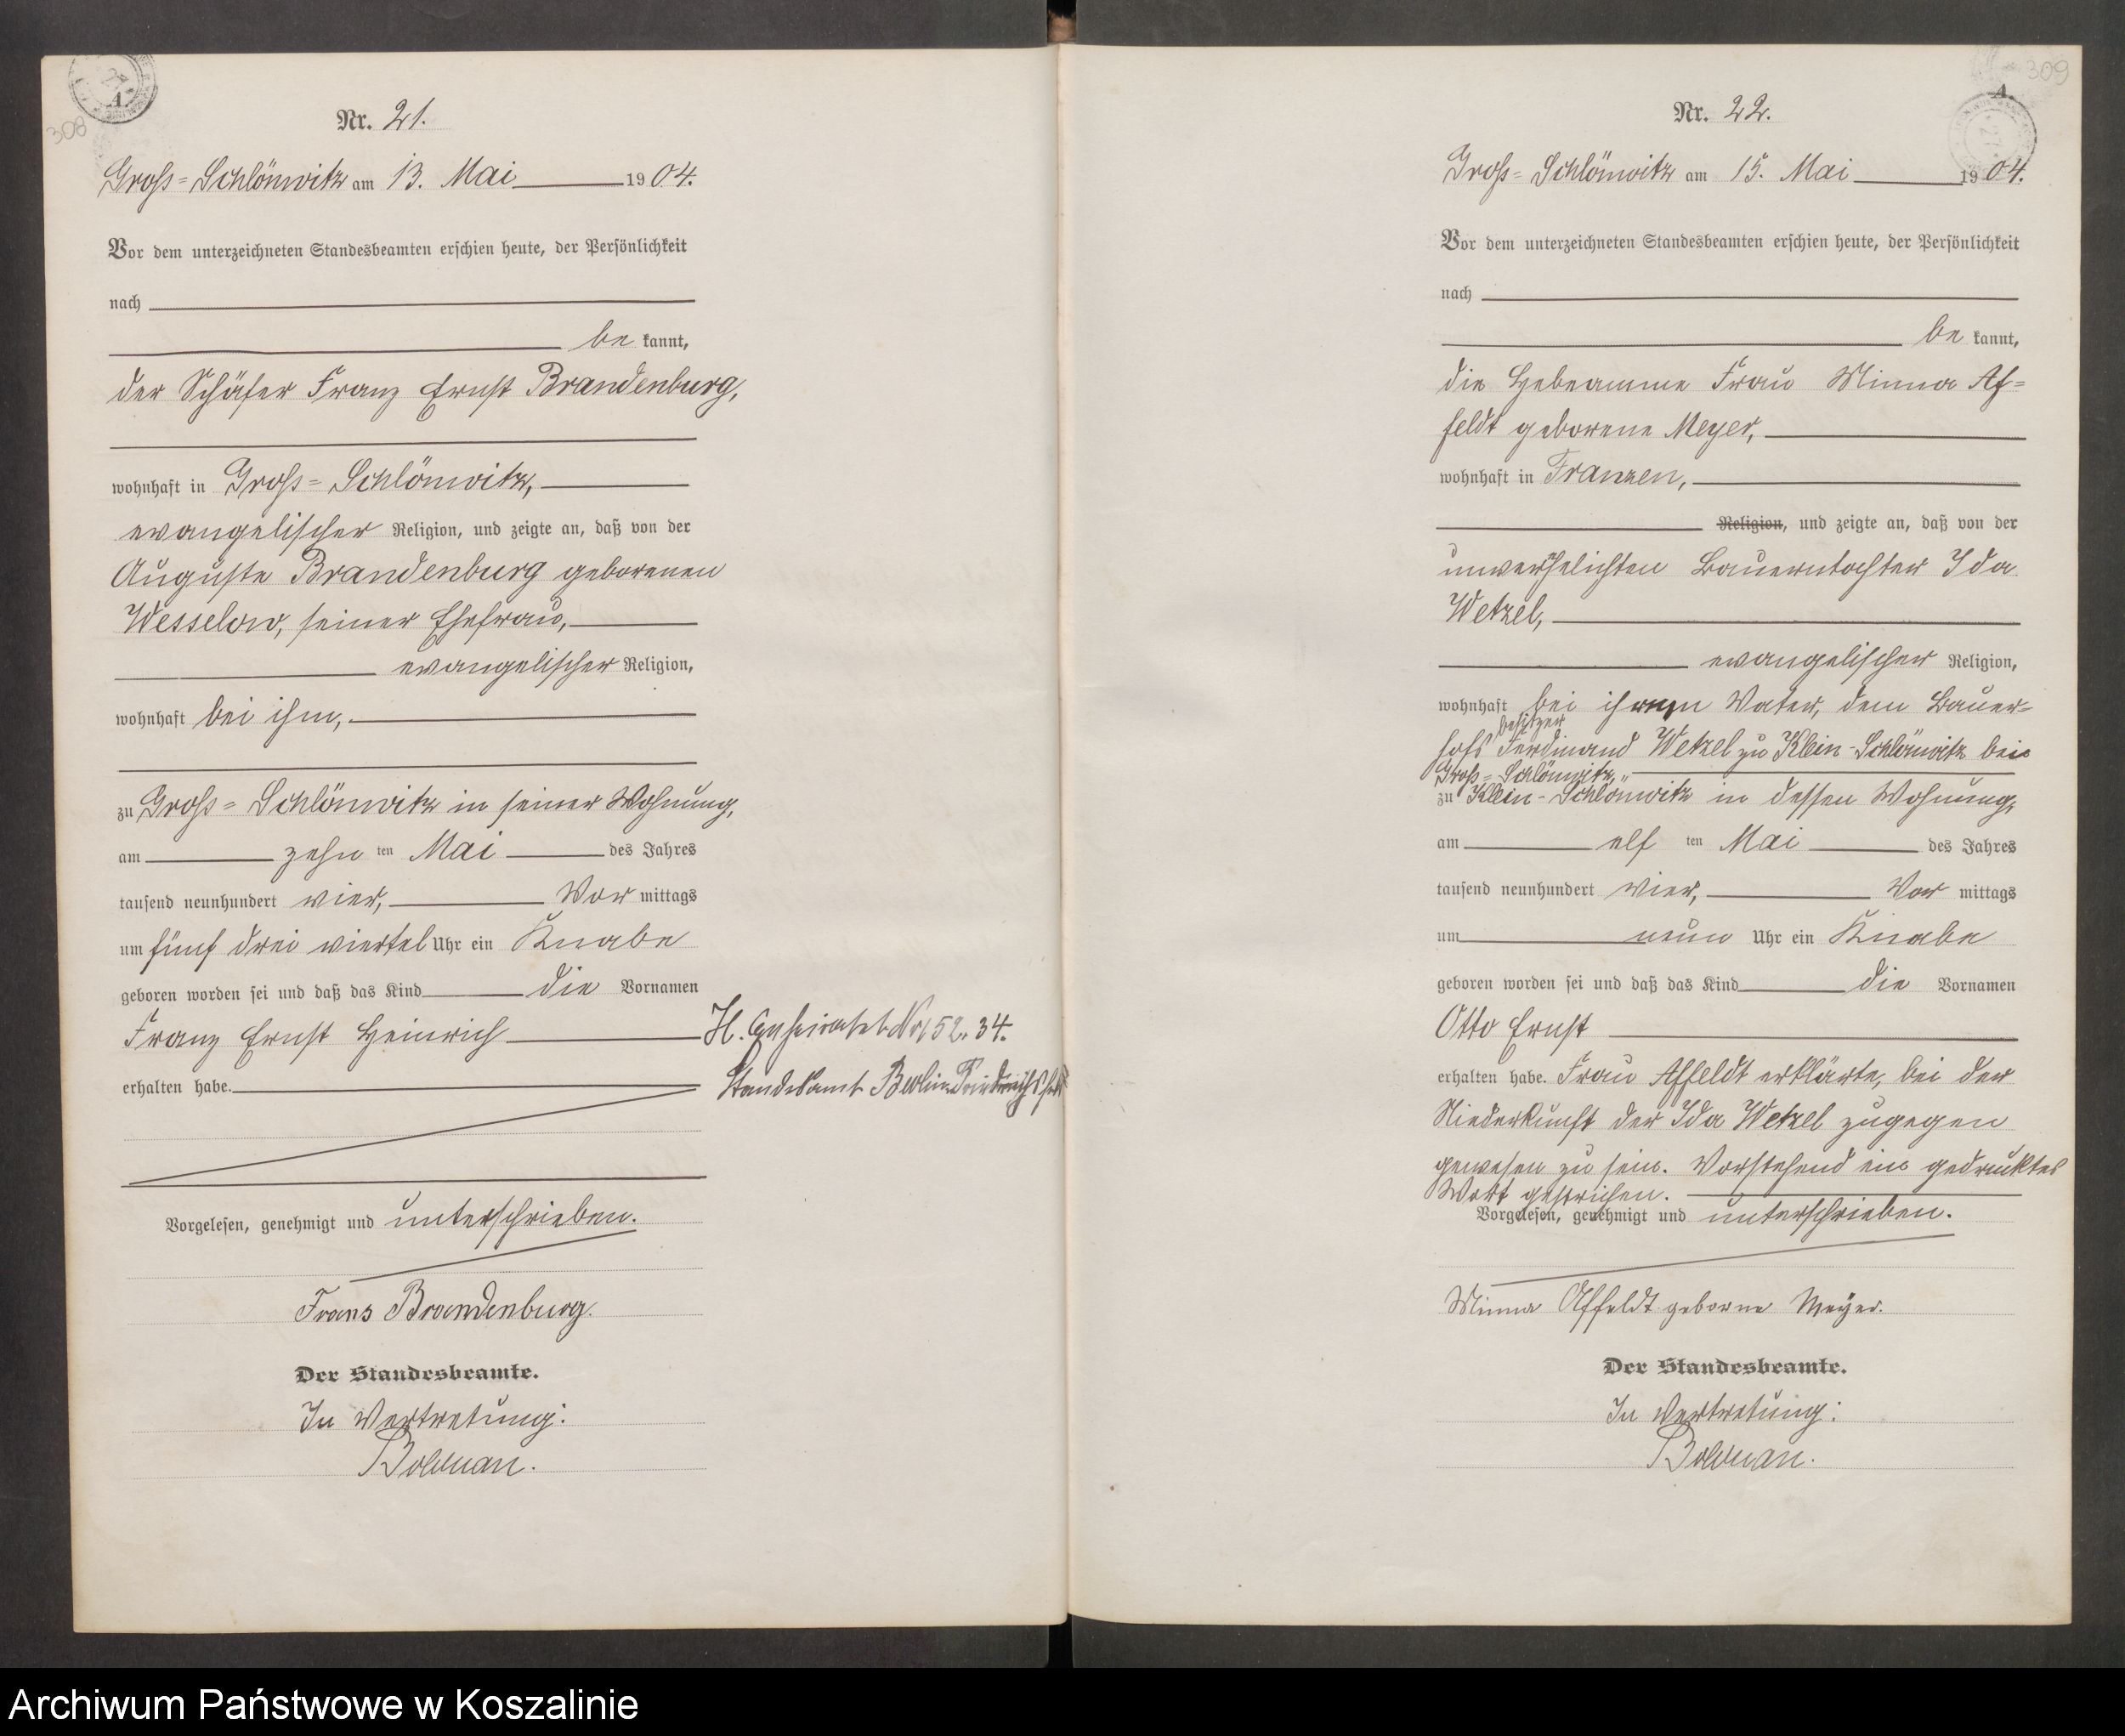 308
A.
Nr. 21.
Gross=Schlönwitz am 13. Mai 1904.
Vor dem unterzeichneten Standesbeamten erschien heute, der Persönlichkeit
nach
be kannt,
der Schäfer Franz Ernst Brandenburg,
wohnhaft in Gross=Schlönwitz,
evangelischer Religion, und zeigte an, daß von der
Auguste Brandenburg geborenen
Wesselow, seiner Ehefrau,
evangelischer Religion,
wohnhaft bei ihm,
zu Gross=Schlönwitz in seiner Wohnung,
am zehn ten Mai des Jahres
tausend neunhundert vier, Vor mittags
um fünf drei viertel Uhr ein Knabe
geboren worden sei und daß das Kind die Vornamen
Franz Ernst Heinrich
erhalten habe.
H. Nr. 52. 34.
Standesamt Berlin
Vorgelesen, genehmigt und unterschrieben.
Frans Brandenburg.
Der Standesbeamte.
In Vertretung:
Bolduan.
309
A.
Nr. 22.
Gross=Schlönwitz am 15. Mai 1904.
Vor dem unterzeichneten Standesbeamten erschien heute, der Persönlichkeit
nach
be kannt,
die Hebeamme Frau Minna Af=
feldt geborene Meyer,
wohnhaft in Franzen,
Religion, und zeigte an, daß von der
unverehelichten Bauerntochter Ida
Wetzel,
evangelischer Religion,
wohnhaft bei ihrem Vater, dem Bauer=
besitzer
hofs Ferdinand Wetzel zu Klein-Schlönwitz bei
Gross=Schlönwitz,
zu Klein-Schlönwitz in dessen Wohnung,
am elf ten Mai des Jahres
tausend neunhundert vier, Vor mittags
um neun Uhr ein Knabe
geboren worden sei und daß das Kind die Vornamen
Otto Ernst
erhalten habe. Frau Affeldt erklärte, bei der
Niederkunft der Ida Wetzel zugegen
gewesen zu sein. Vorstehend ein gedrucktes
Wort gestrichen.
Vorgelesen, genehmigt und unterschrieben.
Minna Affeldt geborne Meyer.
Der Standesbeamte.
In Vertretung:
Bolduan.
Archiwum Państwowe w Koszalinie